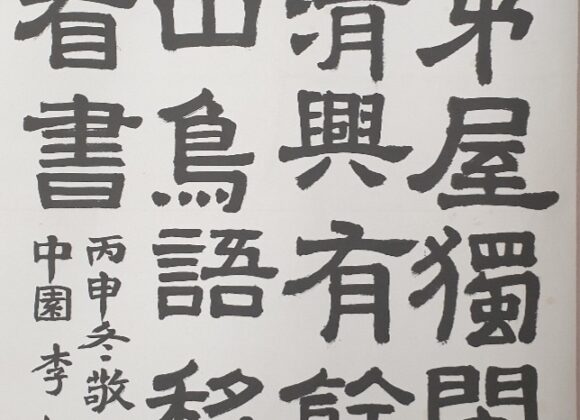 茅屋獨
清興有餘
山鳥語移
看書
丙申冬敬
中園 李